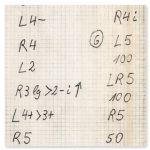 L4-
R4
L2
R3 lg >2-i↑
L4+>3+
R5
R4i
G L5
100
LR5
100
R5
50